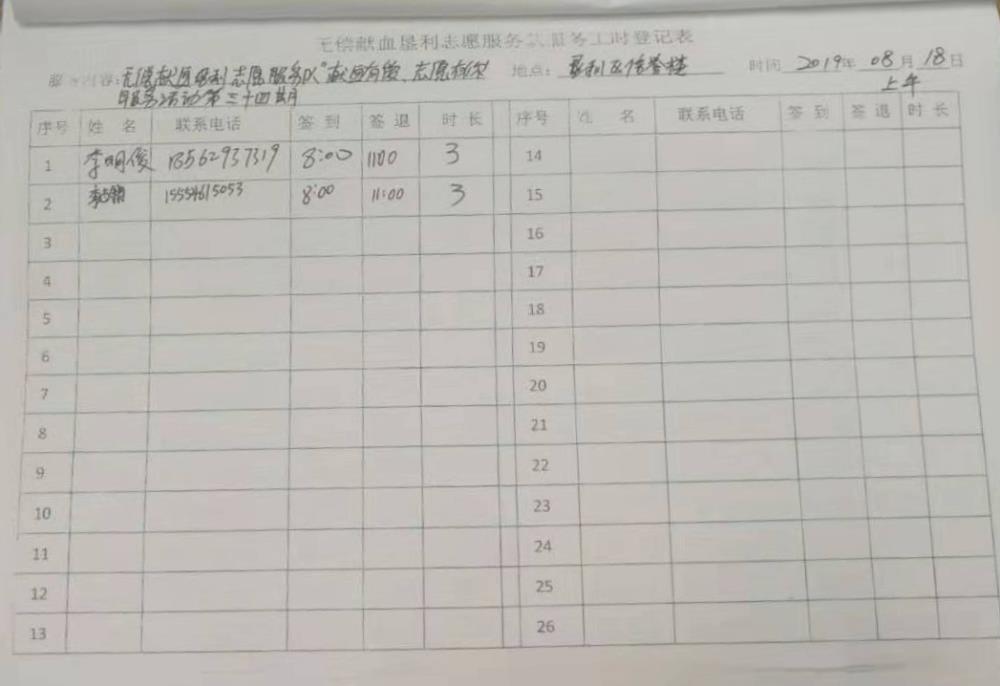 无偿献血垦利志愿服务队服务工时登记表
服务内容:无偿献血垦利志愿服务队"献血有爱、志愿有你 地点: 垦利区 时间 2019年 08月 18日
服务活动第三十四期 上午
序号 姓 名 联系电话 签 到 签 退 时 长 序号 姓 名 联系电话 签 到 签 退 时 长
1 李明俊 13562937319 8:00 1100 3 14
2 15554615053 8:00 11:00 3 15
3 16
4 17
5 18
6 19
7 20
8 21
9 22
10 23
11 24
12 25
13 26